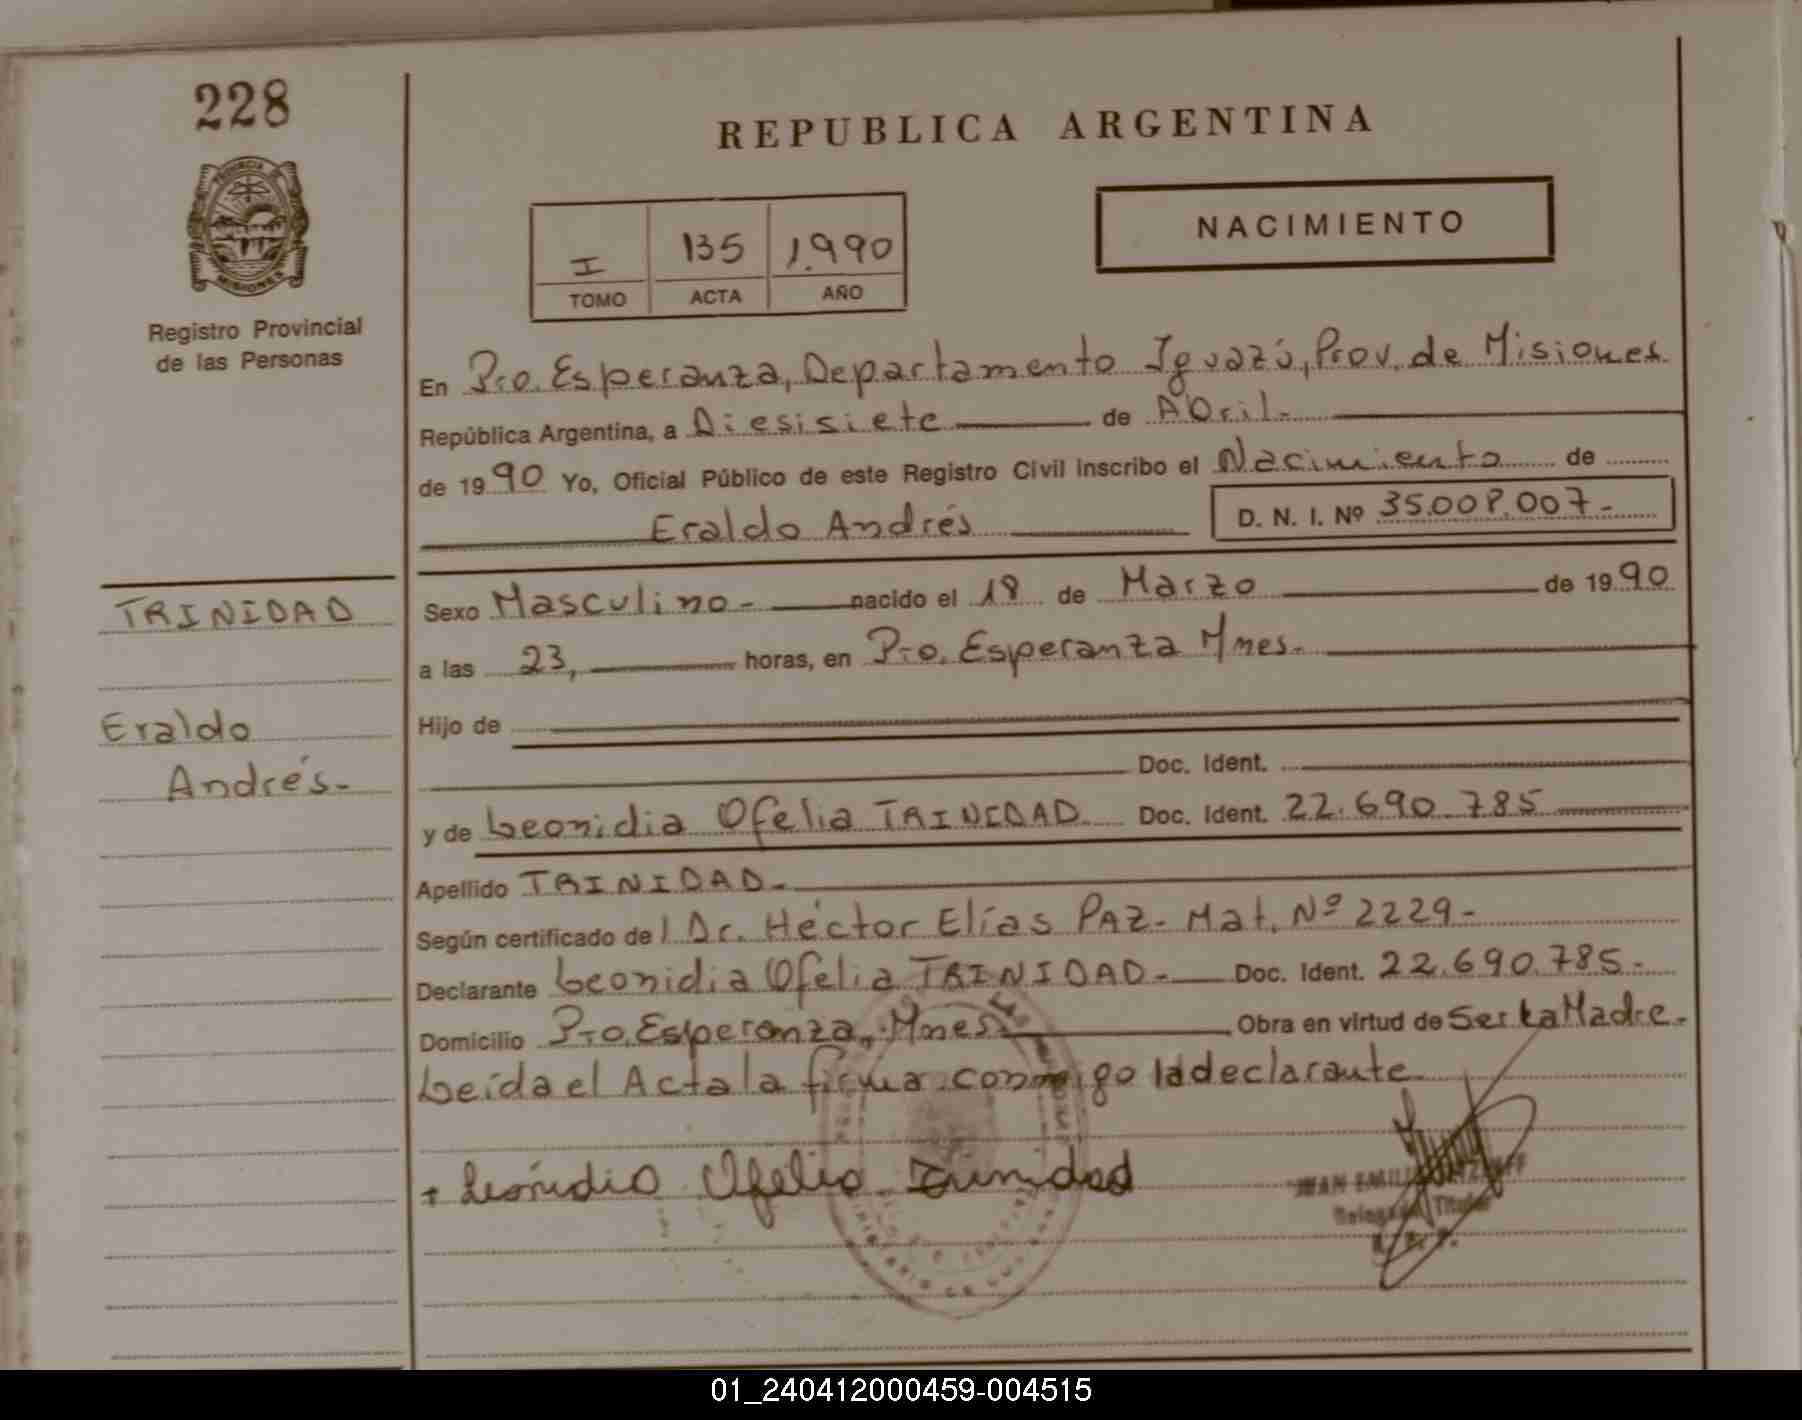 228
REPUBLICA ARGENTINA
NACIMIENTO
I 135 1.990
TOMO ACTA AÑO
PROVINCIA DE
MISIONES
Registro Provincial
de las Personas
En Pto. Esperanza, Departamento Iguazú, Prov. de Misiones
República Argentina, a Diesisiete de Abril-
de 1990 Yo, Oficial Público de este Registro Civil inscribo el Nacimiento de
Eraldo Andrés D. N. I. Nº 35.008.007-
TRINIDAD
Eraldo
Andrés-
Sexo Masculino- nacido el 18 de Marzo de 1990
a las 23, horas, en Pto. Esperanza Mnes-
Hijo de
Doc. Ident.
y de Leonidia Ofelia TRINIDAD Doc. Ident. 22.690.785
Apellido TRINIDAD-
Según certificado del Dr. Héctor Elías PAZ- Mat. Nº 2229-
Declarante Leonidia Ofelia TRINIDAD- Doc. Ident. 22.690.785-
Domicilio Pto. Esperanza, Mnes- Obra en virtud de Ser la Madre-
Leída el Acta la firma conmigo la declarante
+ Leonidia Ofelia Trinidad
JUAN EMILIO
Delegado Titular
01_240412000459-004515